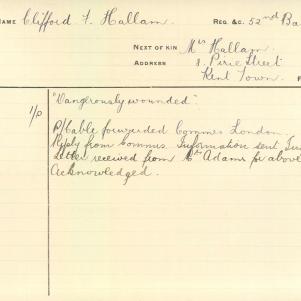 NAME Clifford F. Hallam. REG. &c. 52nd Ba
NEXT OF KIN Mrs Hallam.
ADDRESS 8. Pirie Street
Kent Town.
1/p "Dangerously wounded".
R/Cable forwarded Commrs London.
Reply from Commrs. Information sent
Letter received from Mr Adams for above
Acknowledged.